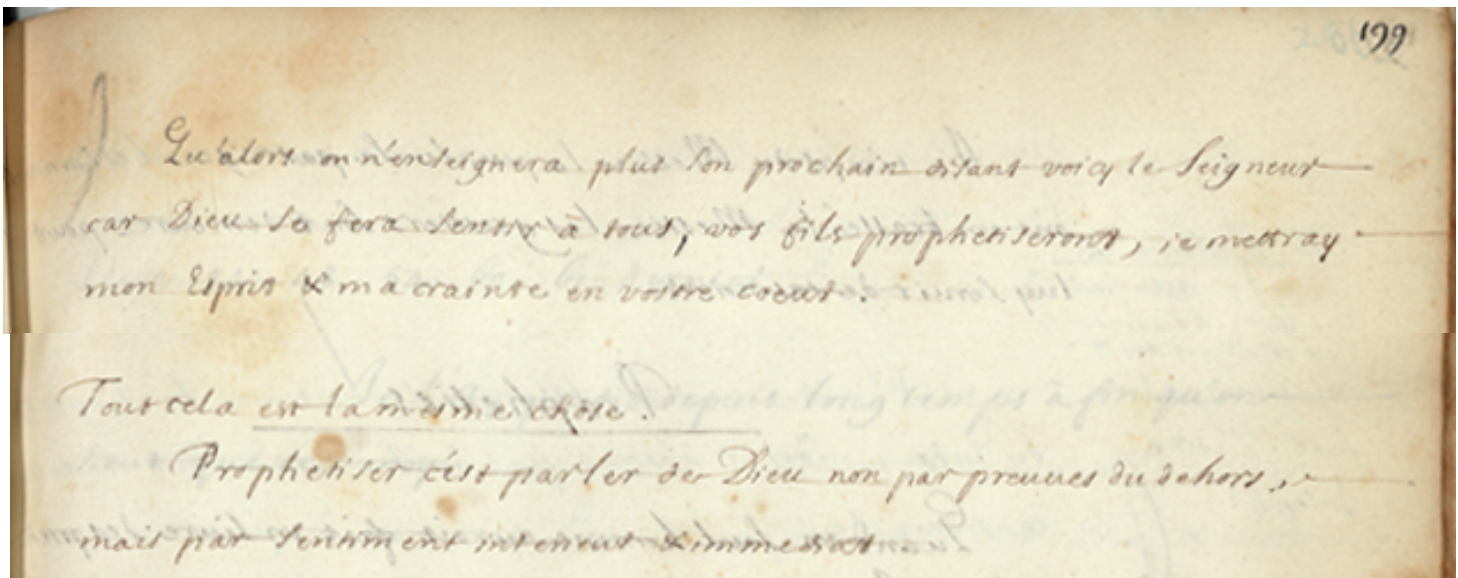 199
Qu'alors on n'enseignera plus son prochain disant voicy le Seigneur
car Dieu se fera sentir a tous, vos fils prophetiseront, ie mettray
mon Esprit & ma crainte en vostre coeur.
Tout cela est la mesme chose.
Prophetiser c'est parler de Dieu non par preuues du dehors,
mais par sentiment interieur & immediat